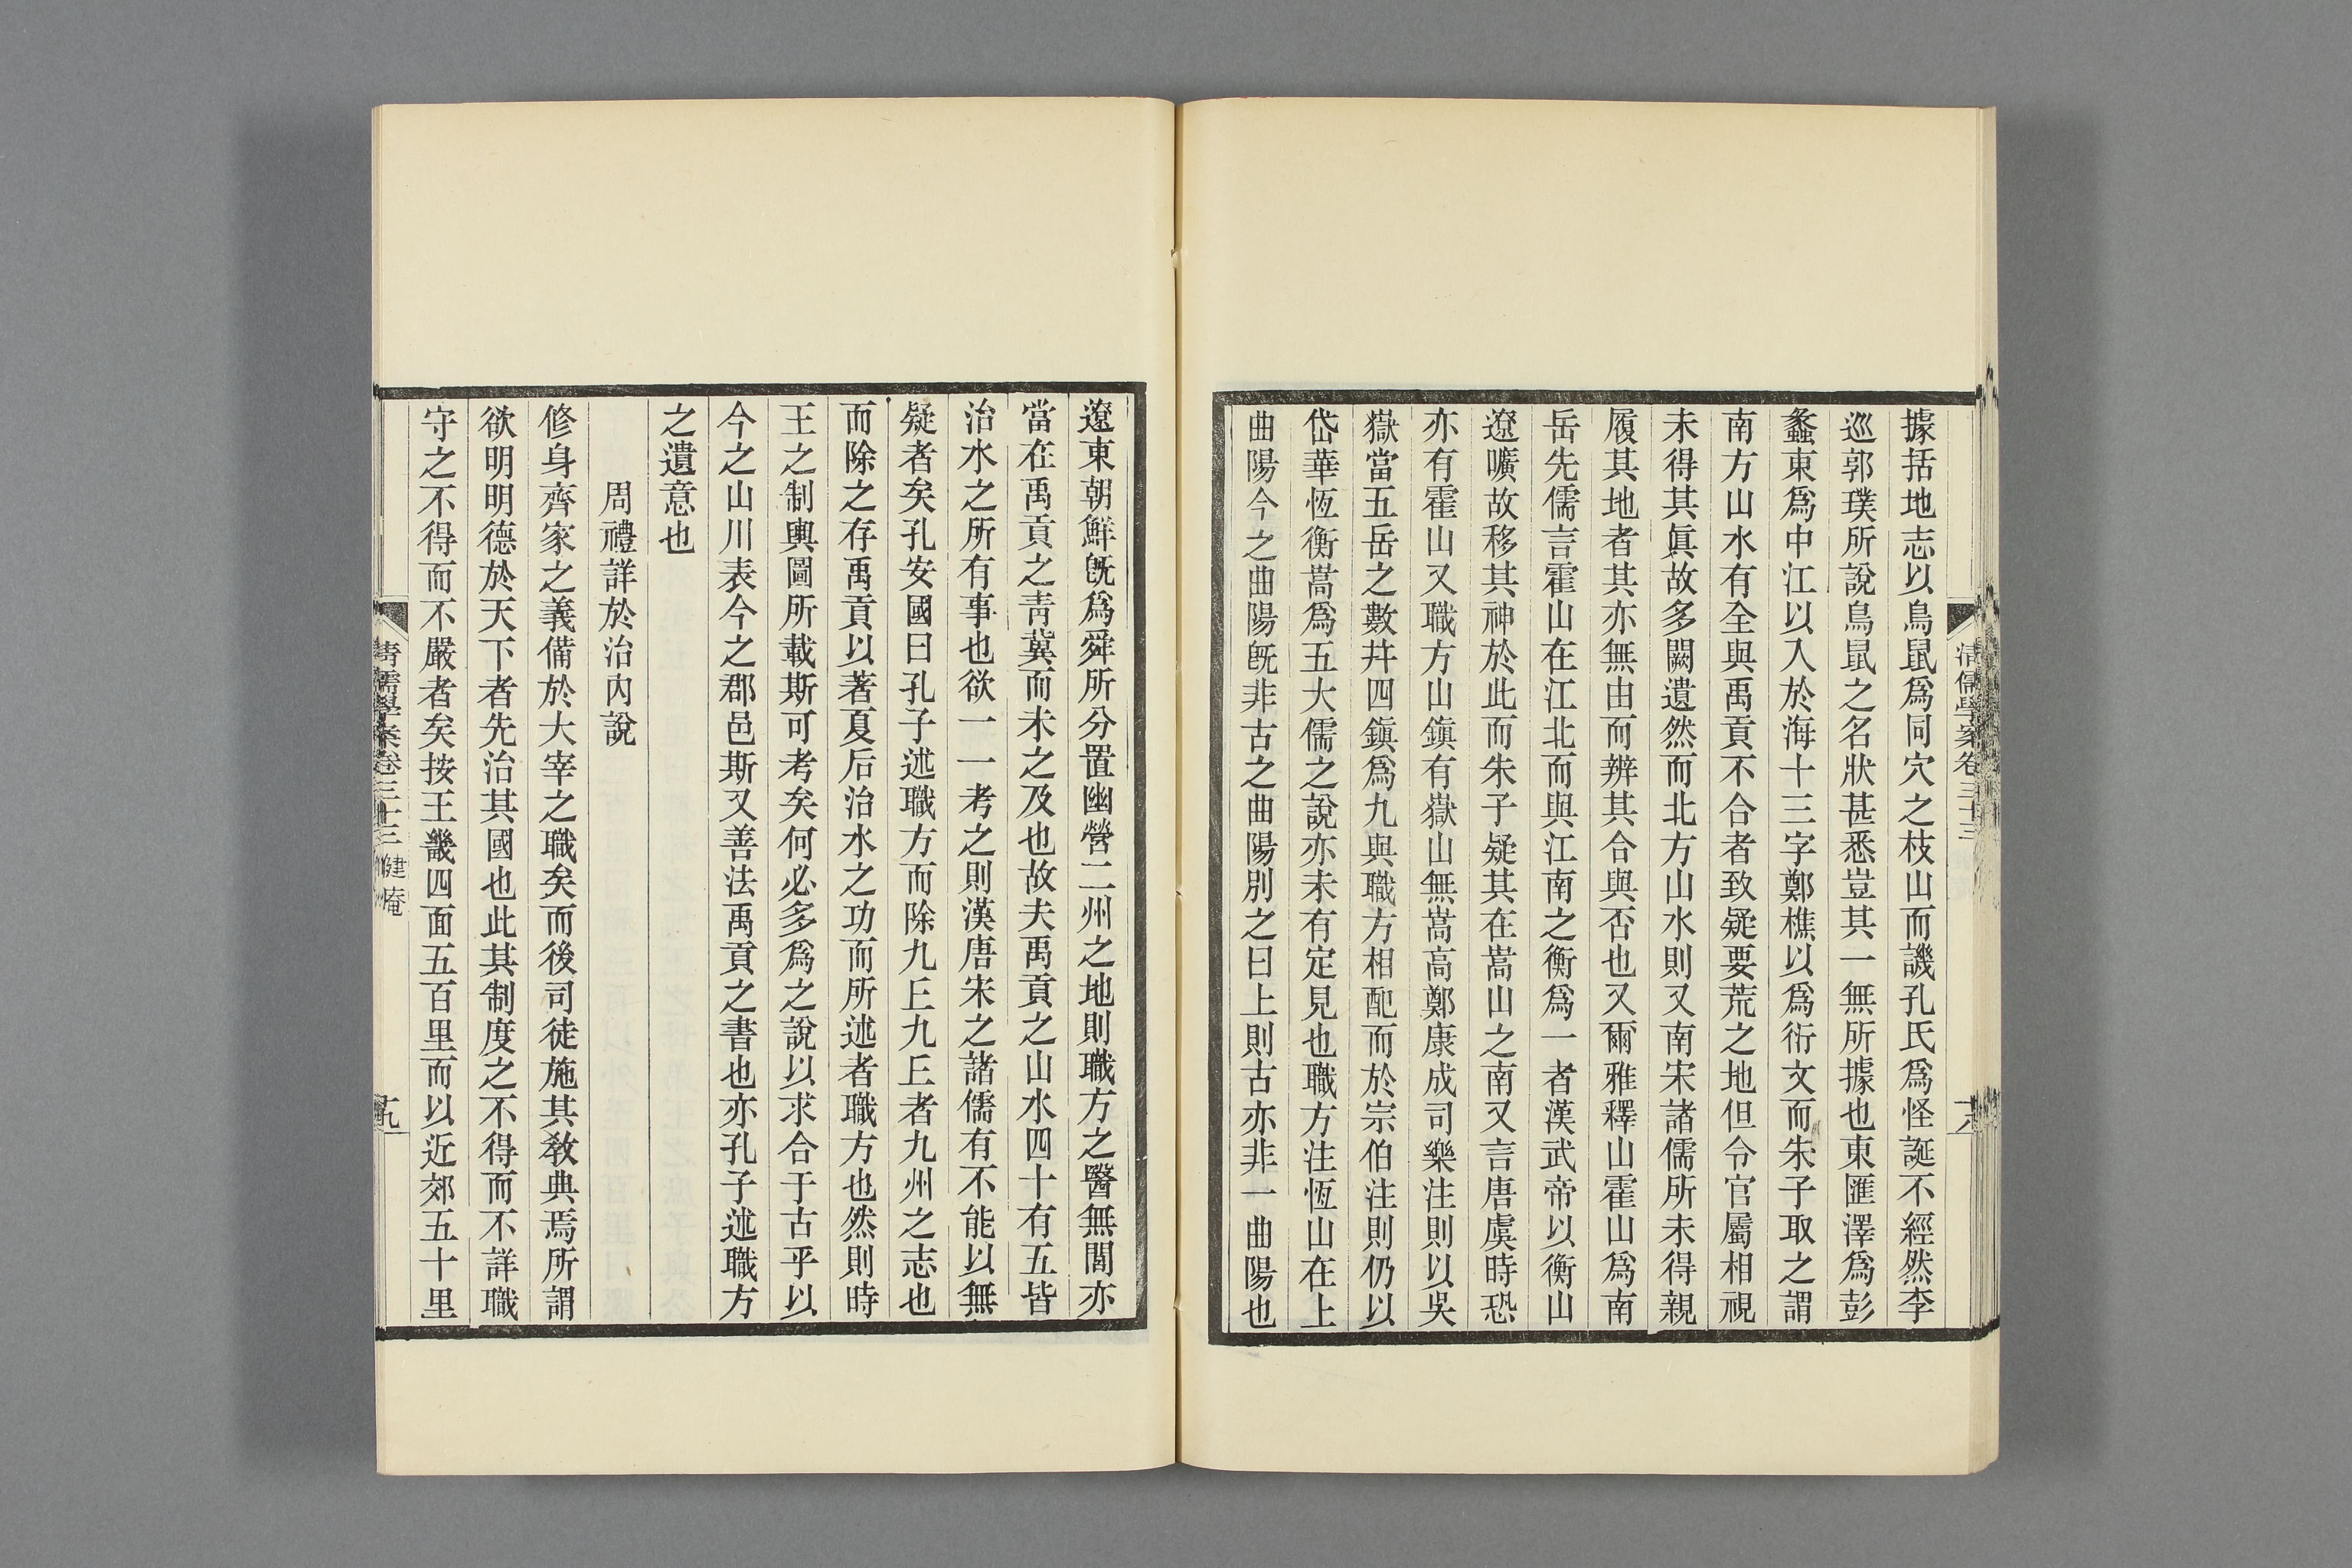 清儒學案卷三十三
十八
據括地志以鳥鼠爲同穴之枝山而譏孔氏爲怪誕不經然李
巡郭璞所說鳥鼠之名狀甚悉豈其一無所據也東匯澤爲彭
蠡東爲中江以入於海十三字鄭樵以爲衍文而朱子取之謂
南方山水有全與禹貢不合者致疑要荒之地但令官屬相視
未得其眞故多闕遺然而北方山水則又南宋諸儒所未得親
履其地者其亦無由而辨其合與否也又爾雅釋山霍山爲南
岳先儒言霍山在江北而與江南之衡爲一者漢武帝以衡山
遼曠故移其神於此而朱子疑其在嵩山之南又言唐虞時恐
亦有霍山又職方山鎭有嶽山無嵩高鄭康成司樂注則以吳
嶽當五岳之數幷四鎭爲九與職方相配而於宗伯注則仍以
岱華恆衡嵩爲五大儒之說亦未有定見也職方注恆山在上
曲陽今之曲陽旣非古之曲陽別之曰上則古亦非一曲陽也
遼東朝鮮旣爲舜所分置幽營二州之地則職方之醫無閭亦
當在禹貢之靑冀而未之及也故夫禹貢之山水四十有五皆
治水之所有事也欲一一考之則漢唐宋之諸儒有不能以無
疑者矣孔安國曰孔子述職方而除九丘九丘者九州之志也
而除之存禹貢以著夏后治水之功而所述者職方也然則時
王之制輿圖所載斯可考矣何必多爲之說以求合于古乎以
今之山川表今之郡邑斯又善法禹貢之書也亦孔子述職方
之遺意也
周禮詳於治內說
修身齊家之義備於大宰之職矣而後司徒施其敎典焉所謂
欲明明德於天下者先治其國也此其制度之不得而不詳職
守之不得而不嚴者矣按王畿四面五百里而以近郊五十里
清儒學案卷三十三 健庵
十九